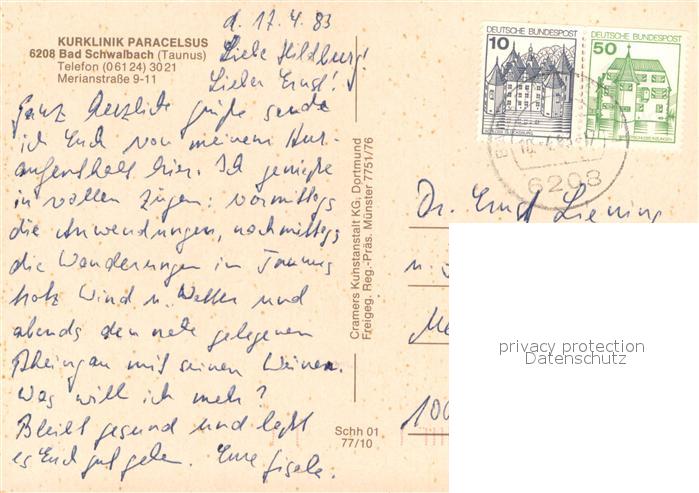 d. 17.4.83
KURKLINIK PARACELSUS
6208 Bad Schwalbach (Taunus)
Telefon (06124) 3021
Merianstraße 9-11
Liebe Hildburg!
Lieber Ernst!
Ganz herzliche Grüße sende
ich Euch von meinem Kur-
aufenthalt hier. Ich genieße
in vollen Zügen: vormittags
die Anwendungen, nachmittags
die Wanderungen im Taunus
trotz Wind u. Wetter und
abends den nahe gelegenen
Rheingau mit seinen Weinen.
Was will ich mehr?
Bleibt gesund und laßt
es Euch gut gehen. Eure Gisela.
Cramers Kunstanstalt KG, Dortmund
Freigeg. Reg.-Präs. Münster 7751/76
Schh 01
77/10
DEUTSCHE BUNDESPOST
10
DEUTSCHE BUNDESPOST
50
6208
Dr. Ernst Liening
u.
Me
100
privacy protection
Datenschutz